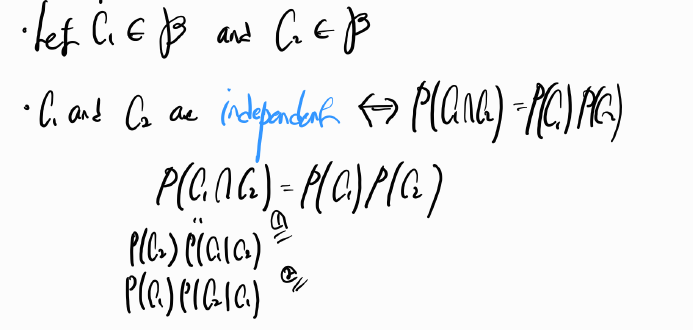 · Let C₁ ∈ β and C₂ ∈ β
· C₁ and C₂ are independent ⟺ P(C₁∩C₂) = P(C₁)P(C₂)
P(C₁∩C₂) = P(C₁)P(C₂)
P(C₂)P(C₁|C₂) ①
P(C₁)P(C₂|C₁) ②